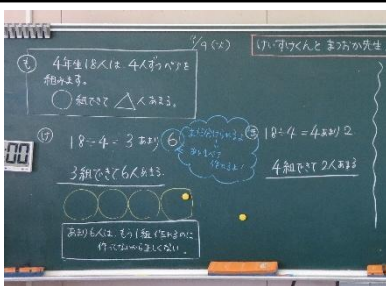 けいすけくんとまつおか先生
も
4年生18人は、4人ずつペアを
組みます。
○組できて△人あまる。
け
18÷4=3あまり6
3組できて6人あまる
18÷4=4あまり2
4組できて2人あまる
あまり6人は、もう1組作れるのに
作ってないから正しくない。
00